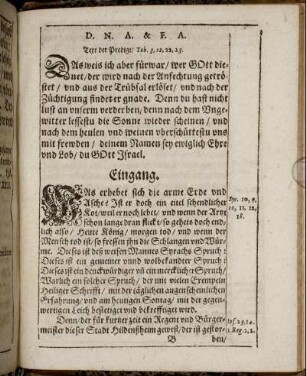 D. N. A. & F. A.
Text der Predigt: Tob. 3, 22, 23.
DAs weis ich aber fürwar / wer GOtt die-
net / der wird nach der Anfechtung getrö-
stet / und aus der Trübsal erlöset / und nach der
Züchtigung findet er gnade. Denn du hast nicht
lust an unserm verderben / denn nach dem Unge-
witter lessestu die Sonne wieder scheinen / und
nach dem heulen und weinen uberschüttestu uns
mit frewden / deinem Namen sey ewiglich Ehre
und Lob / du GOtt Israel.
Eingang.
WAs erhebet sich die arme Erde und
Asche? Ist er doch ein eitel schendlicher
Kot / weil er noch lebt / und wenn der Artzt
schon lange dran flickt / so gehets doch end-
lich also / Heute König / morgen tod / und wenn der
Mensch tod ist / so fressen ihn die Schlangen und Wür-
me. Dieses ist des weisen Mannes Syrachs Spruch:
Dieses ist ein gemeiner unnd wolbekandter Spruch:
Dieses ist ein denckwirdiger uñ ein mercklicher Spruch /
Warlich ein solcher Spruch / der mit vielen Exempeln
Heiliger Schrifft / mit der täglichen augenscheinlichen
Erfahrung / und am heutigen Sontag / mit der gegen-
wertigen Leich bestetiget und bekrefftiget wird.
Denn der für kurtzer zeit ein Regent und Bürger-
meister dieser Stadt Hildenßheim gewest / der ist gestor-
B
ben /
Syr. 10, 9,
10, 11, 12,